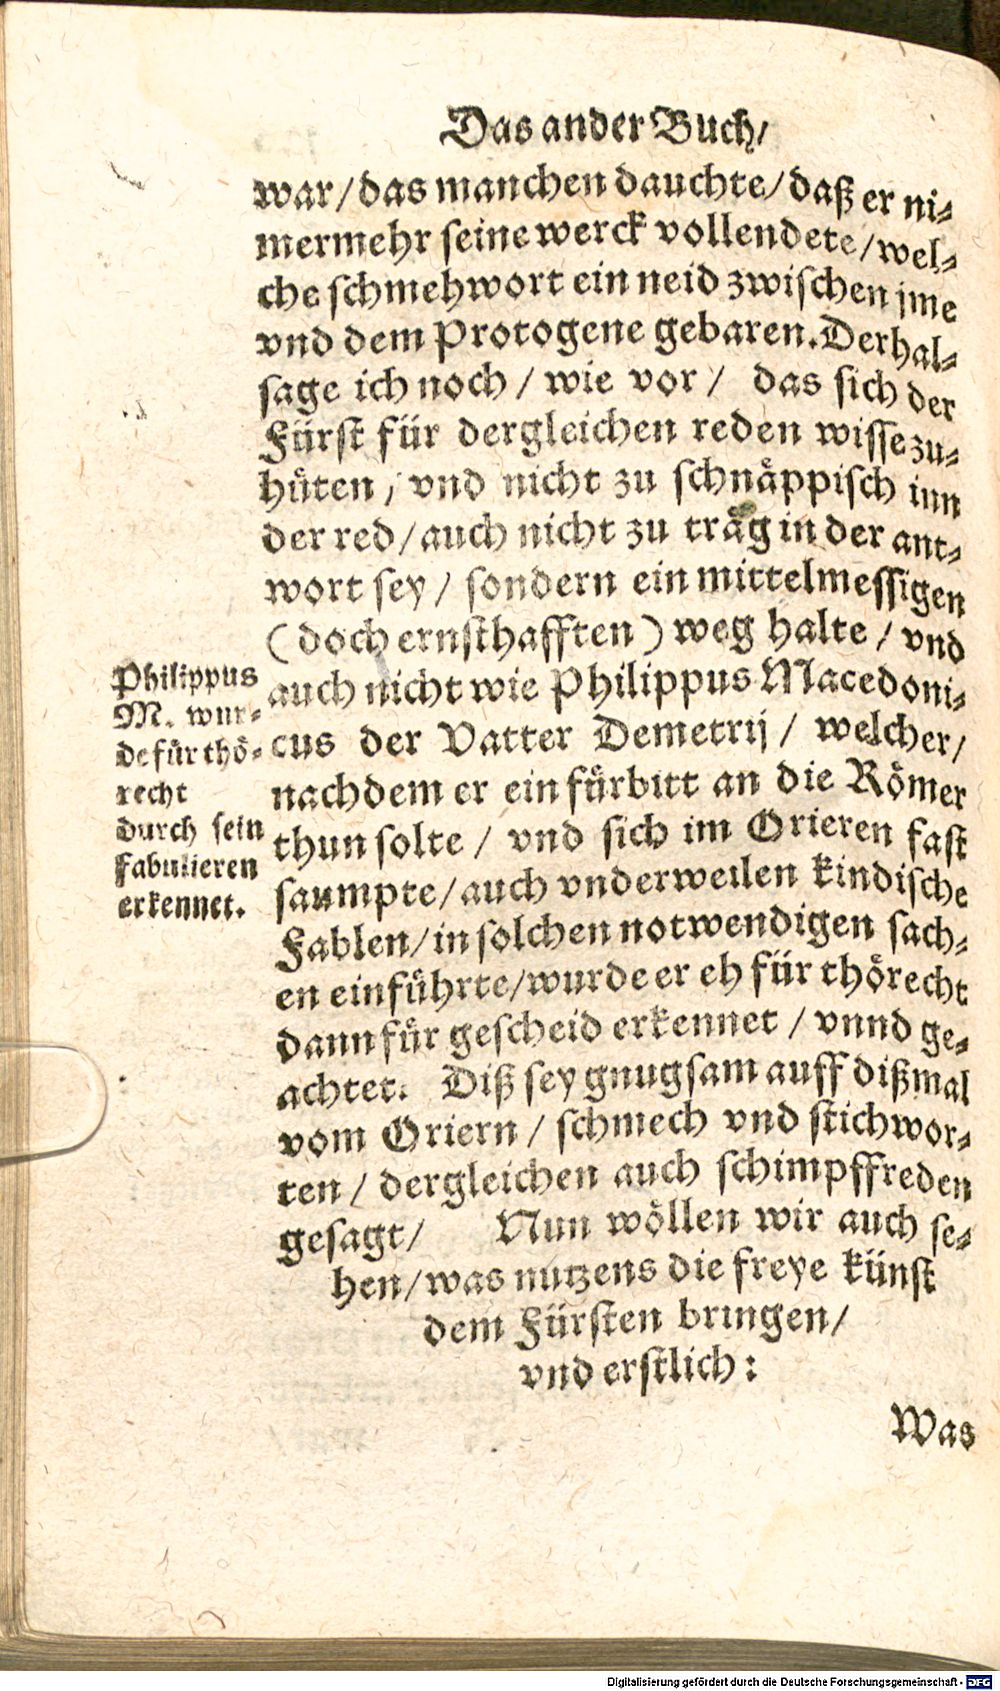 Das ander Buch/
war/das manchen dauchte/daß er ni-
mermehr seine werck vollendete/wel-
che schmehwort ein neid zwischen jme
vnd dem Protogene gebaren.Derhal-
sage ich noch/wie vor/ das sich der
Fürst für dergleichen reden wisse zu-
hüten/vnd nicht zu schnäppisch inn
der red/auch nicht zu träg in der ant-
wort sey/sondern ein mittelmessigen
(doch ernsthafften) weg halte/vnd
auch nicht wie Philippus Macedoni-
cus der Vatter Demetrij/welcher/
nachdem er ein fürbitt an die Römer
thun solte/vnd sich im Grieren fast
saumpte/auch vnderweilen kindische
Fablen/in solchen notwendigen sach-
en einführte/wurde er eh für thörecht
dann für gescheid erkennet/vnnd ge-
achtet. Diß sey gnugsam auff dißmal
vom Griern/schmech vnd stichwor-
ten/dergleichen auch schimpffreden
gesagt/ Nun wöllen wir auch se-
hen/was nutzens die freye künst
dem Fürsten bringen/
vnd erstlich:
Was
Philippus
M. wur-
de für thö-
recht
durch sein
fabulieren
erkennet.
Digitalisierung gefördert durch die Deutsche Forschungsgemeinschaft - DFG